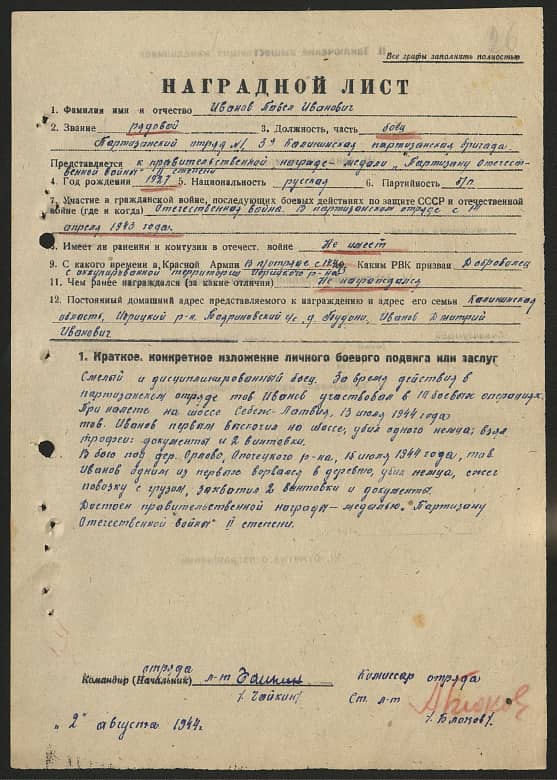 26
Все графы заполнять полностью
НАГРАДНОЙ ЛИСТ
1. Фамилия имя и отчество Иванов Павел Иванович
2. Звание рядовой 3. Должность, часть боец
Партизанский отряд №1, 3я Калининская партизанская бригада
Представляется к правительственной награде медали „Партизану Отечест-
венной войны" II степени
4. Год рождения 1927 5. Национальность русская 6. Партийность б/п
7. Участие в гражданской войне, последующих боевых действиях по защите СССР и отечественной
войне (где и когда) Отечественная война. В партизанском отряде с
апреля 1943 года.
8. Имеет ли ранения и контузии в отечест. войне Не имеет
9. С какого времени в Красной Армии В п/отряде с 1943г. Каким РВК призван Доброволец
с оккупированной территории Идрицкого р-на
11. Чем ранее награждался (за какие отличия) Не награждался
12. Постоянный домашний адрес представляемого к награждению и адрес его семьи Калининская
область, Идрицкий р-н, с/с, д. Иванов Дмитрий
Иванович
1. Краткое, конкретное изложение личного боевого подвига или заслуг
Смелый и дисциплинированный боец. За время действия в
партизанском отряде тов Иванов участвовал в 10 боевых операциях.
При налете на шоссе Себеж-Латвия, 13 июля 1944 года
тов. Иванов первым выскочил на шоссе, убил одного немца; взял
трофеи: документы и 2 винтовки.
В бою под дер. Орлово, Опочецкого р-на, 15 июля 1944 года, тов
Иванов одним из первых ворвался в деревню, убил немца, сжег
повозку с грузом, захватил 2 винтовки и документы.
Достоин правительственной награды – медалью „Партизану
Отечественной войны" II степени.
отряда
Командир (Начальник) л-т Чайкин
/Чайкин/
Комиссар отряда
Ст. л-т
„2" августа 1944г.